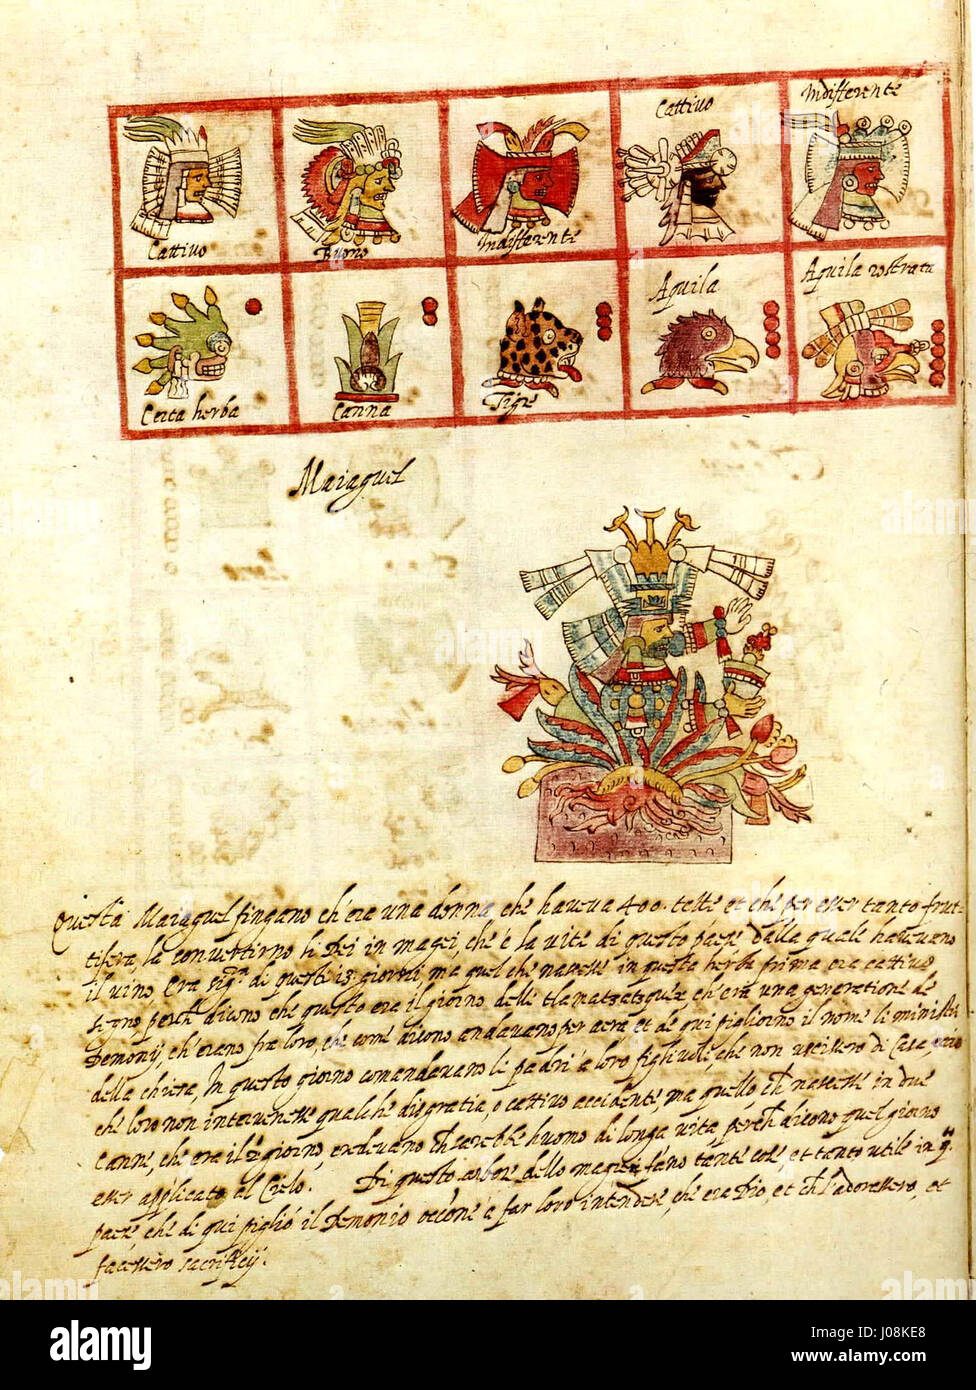 Cattivo Indifferente
Cattivo Buono Indifferente
Aquila Aquila rostrata
Certa herba Canna Tigre
Maiaguel
Questa Maiaguel fingano ch'era una donna, che haveva 400. tette et che per esser tanto frut-
tifera, la convertirno li Dei in magei, che è la vite di questo paese dalla quale havevano
il vino. Era di questi 13 giorni, ma quel che nascesse in questa herba prima era cattivo
segno perch dicono che questo era il giorno delli ch'era una generatione de
Demonij, ch'erano fra loro, che come dicono andavano per aera, et de qui pigliorno il nome li ministri
della chiesa, In questo giorno comandavano li padri à loro figliuoli, che non uscissero di Casa,
che loro non intervenesse qualche disgratia, o cattivo accidente, ma quello ch nascesse in due
Canne, che era il 2º giorno, credevano ch sarebbe huomo di longa vita, perch dicono quel giorno
esser applicato al Cielo. Di questo arbore dello magei fano tante cose, et tanto utile in
paese, che di qui pigliò il Demonio occone à far loro intendere, che era Dio, et ch l'adorassero, et
facessero sacrificij.
alamy
Image ID: J08KE8
www.alamy.com